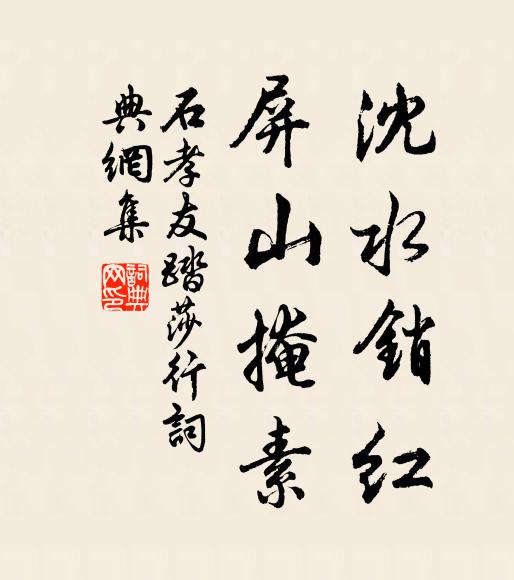 沈水銷紅
屏山掩素
石孝友踏莎行詞
典網集
詞典
网印